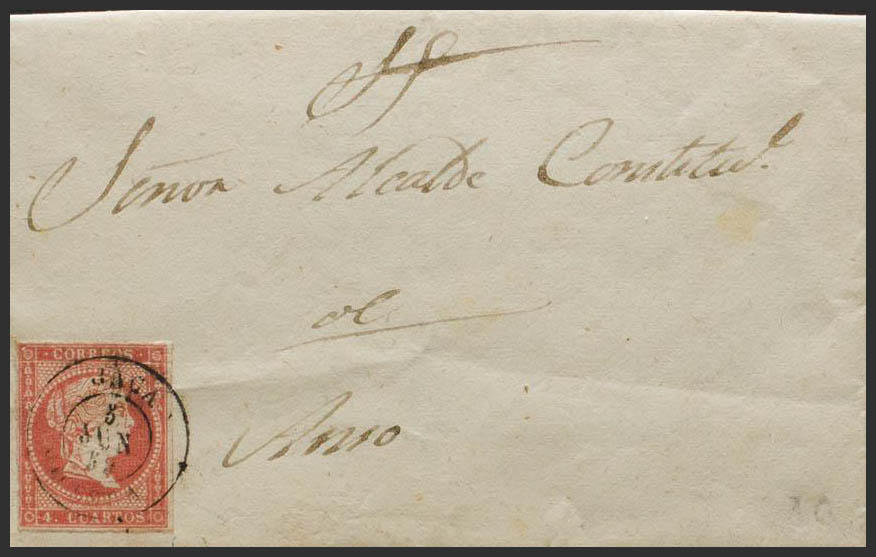 Sr
Señor Alcalde Constitul.
de
Anso
CORREOS
JACA
5
JUN
4. CUARTOS